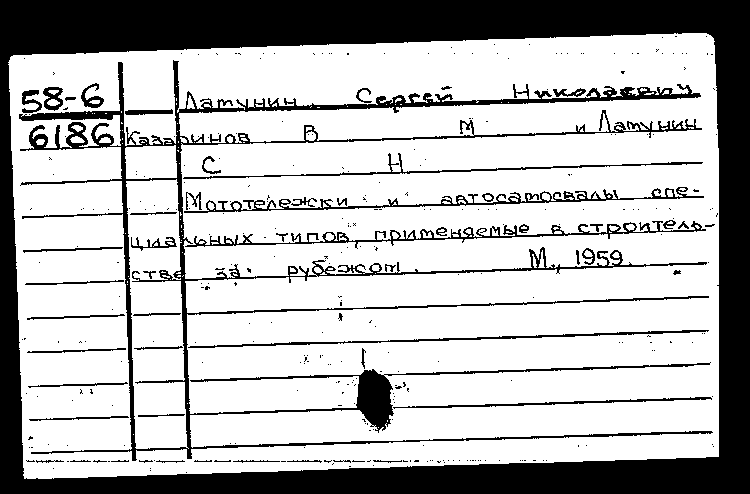 58-6 Латунин Сергей Николаевич
6186 Казаринов В М и Латунин
С Н
Мототележки и автосамосвалы спе-
циальных типов, применяемые в строитель-
стве за рубежом. М., 1959.